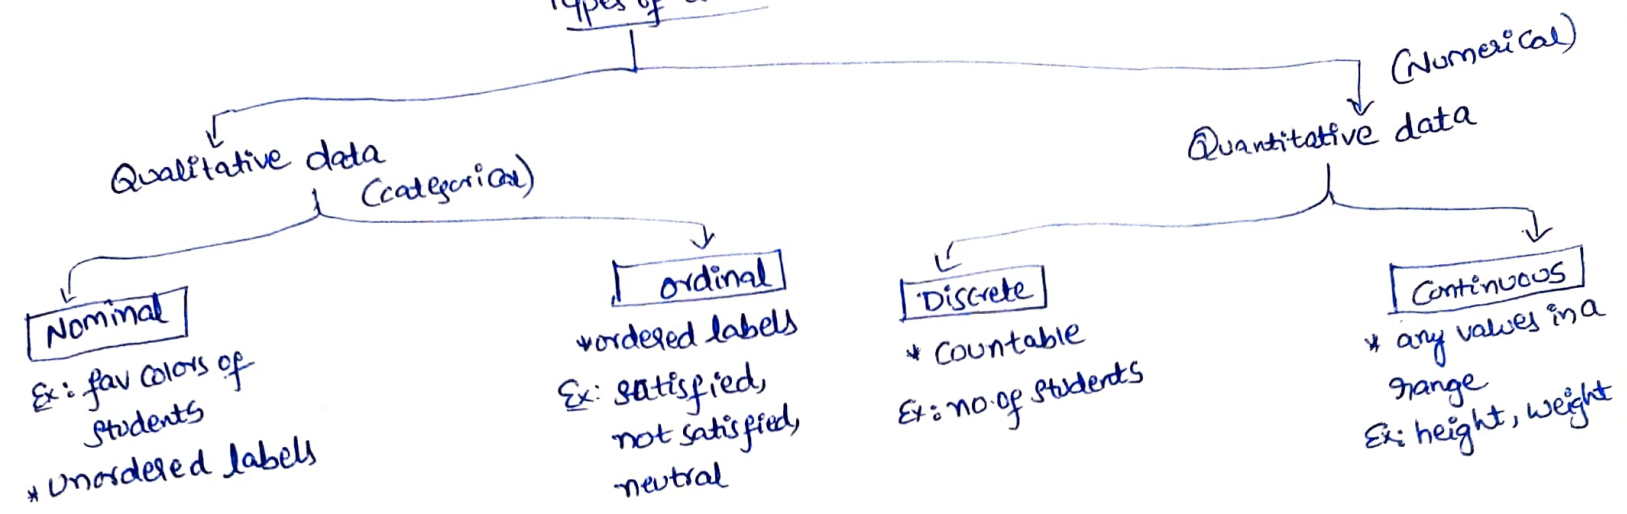 Types of
(Numerical)
Quantitative data
Qualitative data
(categorical)
Nominal
Ex: fav colors of
students
* unordered labels
ordinal
* ordered labels
Ex: satisfied,
not satisfied,
neutral
Discrete
* Countable
Ex: no. of students
Continuous
* any values in a
range
Ex: height, weight